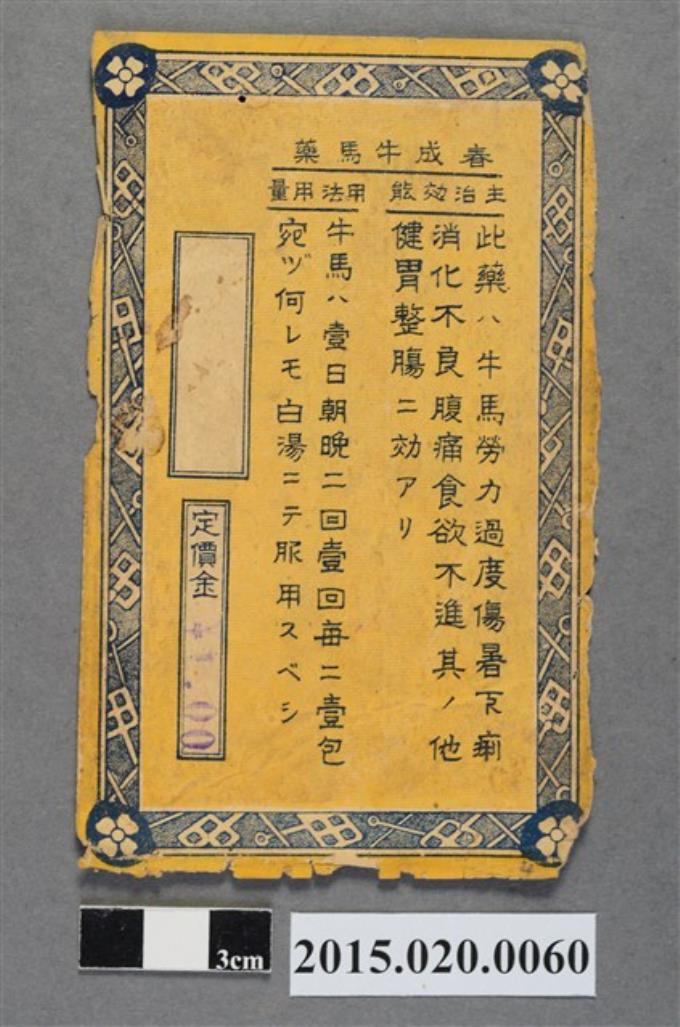 春成牛馬藥
主治効能
此藥ハ牛馬勞力過度傷暑下痢
消化不良腹痛食欲不進其ノ他
健胃整腸ニ効アリ
用法用量
牛馬ハ壹日朝晩二回壹回每ニ壹包
宛ヅ何レモ白湯ニテ服用スベシ
定價金 1.00
3cm
2015.020.0060